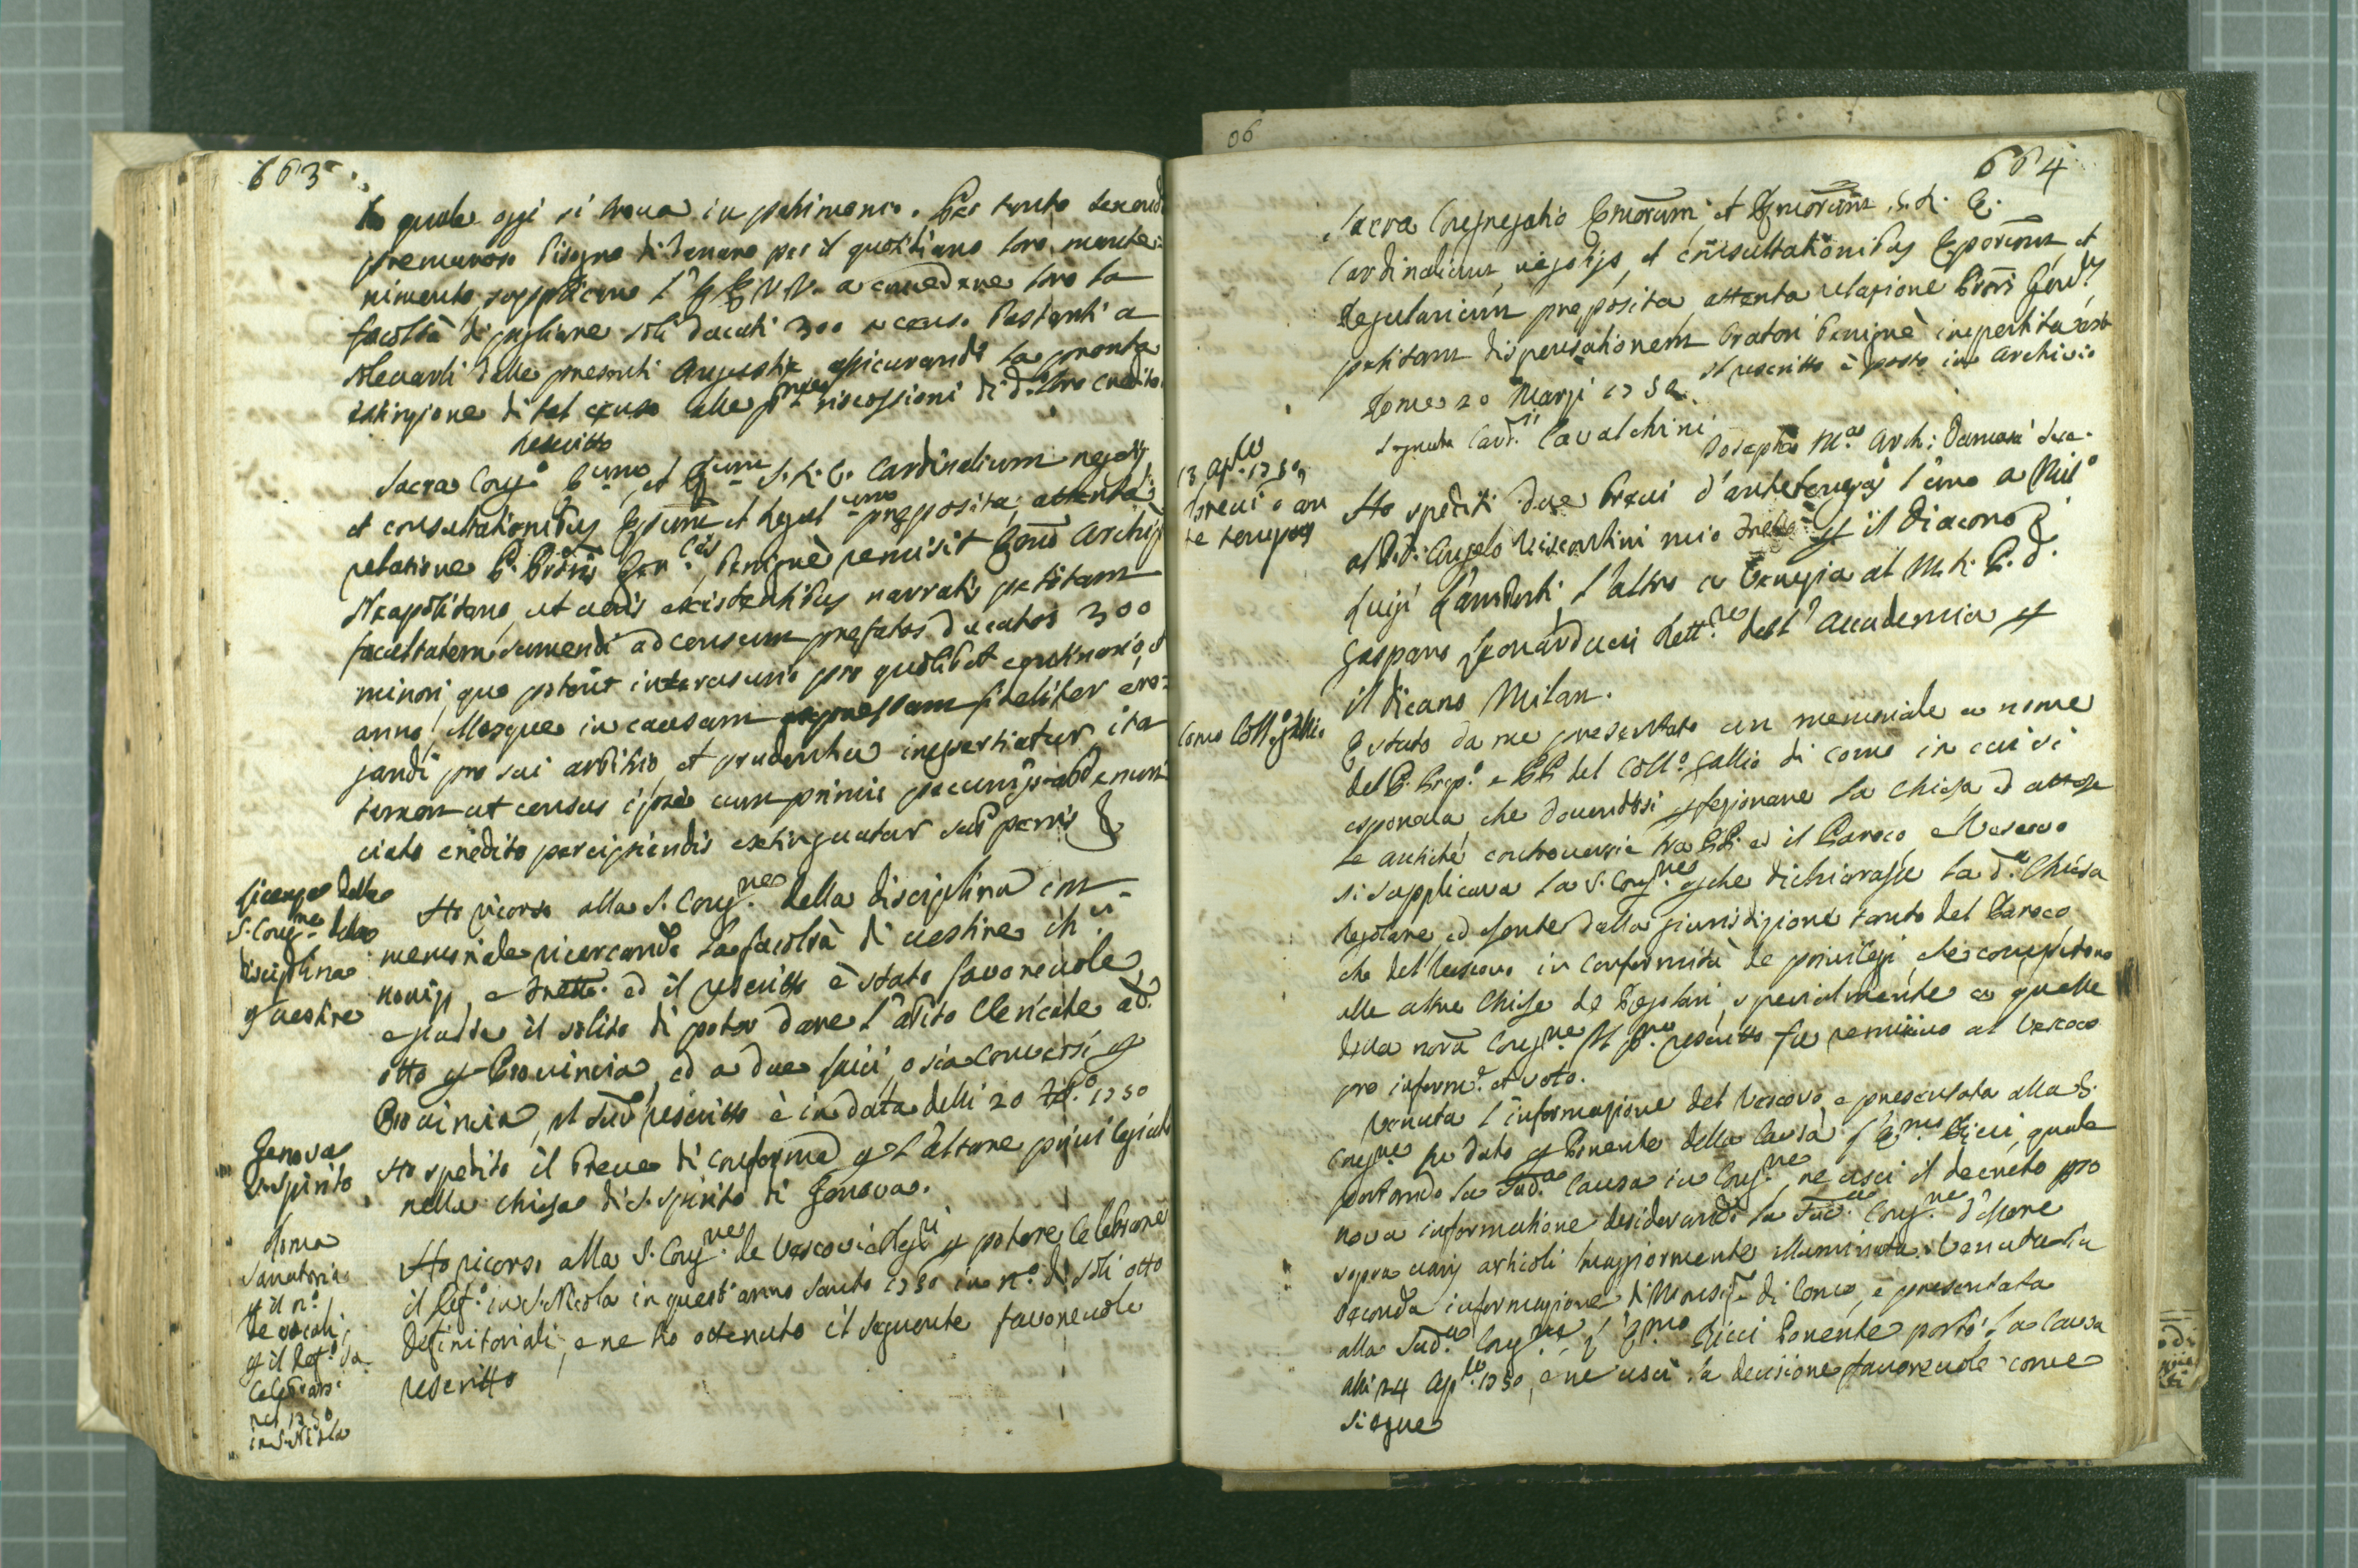 663
la quale oggi si trova in patrimonio. Per tanto tenendo
premuroso bisogno di denaro per il quotidiano loro mante-
nimento, supplicano l' EE. VV. a concedere loro la
facoltà di pigliare soli ducati 300 a censo bastanti a
sollevarli dalle presenti angustie, assicurando la pronta
estinzione di tal censo alle pme riscossioni di d. loro credito.
Rescritto
Sacra Congo. Emm, et S. R. E. Cardinalium negotijs
et consultationibus Episcm et Regul preposita; attenta
relatione P. Proris Genlis, benignè remisit Archiepo
Neapolitano, ut veris existentibus narratis petitam
facultatem sumendi ad censum prefatos ducatos 300
minori, quo poterit interusurio pro quolibet centenario, et
anno, illosque in causam expressam fideliter ero-
gandi pro sui arbitrio, et prudentia impertiatur ita
tamen ut census ipse cum primis pecunijs ab enun-
ciato credito percipiendis extinguatur sub penis &
Licenza della
S. Congne della
disciplina
p vestire
Ho ricorso alla S. Congne. della disciplina con
memoriale ricercando la facoltà di vestire chci
novizj, e fratti. ed il rescritto è stato favorevole,
e giusta il solito di poter dare l'abito Clericale ad
otto p Provincia, ed a due laici, o sia Conversi p
Provincia, il sud rescritto è in data delli 20 1750
Genova
S. Spirito
Ho spedito il Breve di conferma p l'altare privilegiato
nella chiesa di S. Spirito di Genova.
Roma
Sanatoria
p il no.
de vocali,
p il Defo. da
celebrarsi
nel 1750
in S. Nicola
Ho ricorso alla S. Congne. de Vescovi e Regri p potere celebrare
il Defo. in S. Nicola in quest' anno santo 1750 in no. di soli otto
definitoriali, e ne ho ottenuto il seguente favorevole
rescritto
06
664
Sacra Congregatio Emorum, et S. R. E.
Cardinalium negotijs, et consultationibus Eporum, et
Regularium preposita attenta relatione Proris Gen.lis
petitam dispensationem Oratori benignè impertita est
Rome 20 Marzi 1750. il rescritto è posto in Archivio
Segnato Card. Cavalchini
Joseph Ma. Arch: Damasci Sec.
13 Aple. 1750
Brevi ante
tempus
Ho spediti due Brevi d'ante tempus l'uno a Milo
al P. D. Angelo Viscontini mio p il Diacono D.
Luigi Lamberti, l'altro a Venezia al M. R. P. D.
Gasparo Leonarducci Rettre. dell' Accademia p
il Dicano Milan.
Como Collo. Gallio
E stato da me presentato un memoriale a nome
del P. Prepo. e PP. del Collo. Gallio di Como in cui si
esponeva, che dovendosi la Chiesa, ed attese
le antiche controversie tra PP. ed il Paroco, e Vescovo
si supplicava la S. Congne. che dichiarasse la d. Chiesa
Regolare, ed esente dalla giurisdizione tanto del Paroco
che del Vescovo in conformità de privilegi, che competono
alle altre Chiese de Regolari, specialmente a quelle
della nora Congne. Il po. rescritto fu remissivo al Vescovo
pro informe. et voto.
Venuta l'informazione del Vescovo, e presentata alla S.
Congne fu dato p Ponente della Causa l'Emo Ricci, quale
portando la Suda. Causa in Congne, ne uscì il decreto pro
nova informatione desiderando la Suda. Congne. d'essere
sopra varij articoli maggiormente illuminata. Venuta la
seconda informazione di Monsigr di Como, e presentata
alla Suda. Congne, l'Emo. Ricci Ponente portò la Causa
alli 24 Aple. 1750, e ne uscì la decisione favorevole come
siegue